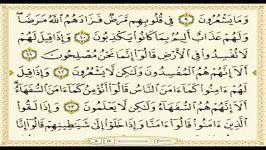 وَمَا يَشْعُرُونَ ۝٩ فِى قُلُوبِهِم مَّرَضٌ فَزَادَهُمُ ٱللَّهُ مَرَضًا ۖ
وَلَهُمْ عَذَابٌ أَلِيمٌۢ بِمَا كَانُوا۟ يَكْذِبُونَ ۝١٠ وَإِذَا قِيلَ لَهُمْ
لَا تُفْسِدُوا۟ فِى ٱلْأَرْضِ قَالُوٓا۟ إِنَّمَا نَحْنُ مُصْلِحُونَ ۝١١
أَلَآ إِنَّهُمْ هُمُ ٱلْمُفْسِدُونَ وَلَـٰكِن لَّا يَشْعُرُونَ ۝١٢ وَإِذَا قِيلَ
لَهُمْ ءَامِنُوا۟ كَمَآ ءَامَنَ ٱلنَّاسُ قَالُوٓا۟ أَنُؤْمِنُ كَمَآ ءَامَنَ ٱلسُّفَهَآءُ ۗ
أَلَآ إِنَّهُمْ هُمُ ٱلسُّفَهَآءُ وَلَـٰكِن لَّا يَعْلَمُونَ ۝١٣ وَإِذَا لَقُوا۟
ٱلَّذِينَ ءَامَنُوا۟ قَالُوٓا۟ ءَامَنَّا وَإِذَا خَلَوْا۟ إِلَىٰ شَيَـٰطِينِهِمْ قَالُوٓا۟